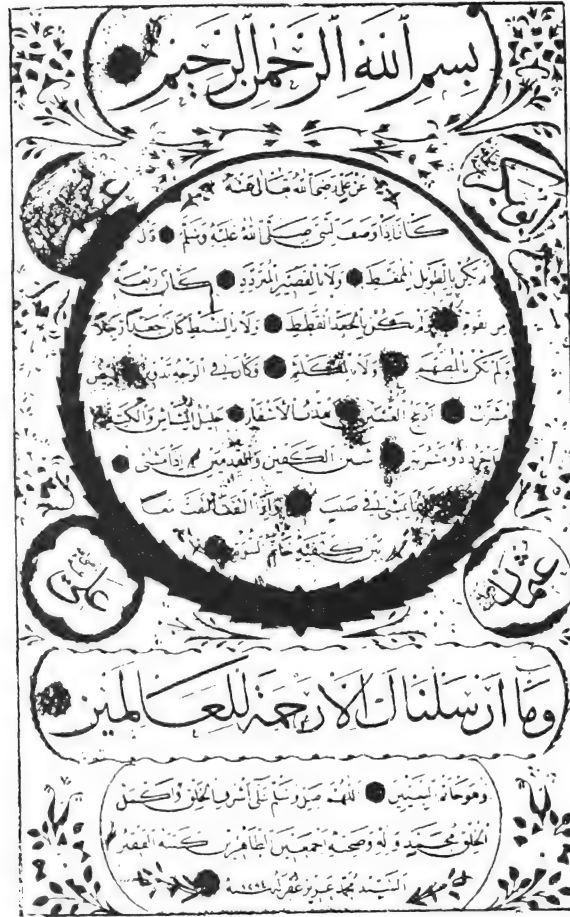 بسم الله الرحمن الرحيم
أبو بكر
عمر
عن علي رضي الله تعالى عنه
كان اذا وصف النبي صلى الله عليه وسلم قال
لم يكن بالطويل الممغط ولا بالقصير المتردد كان ربعة
من القوم لم يكن بالجعد القطط ولا بالسبط كان جعدا رجلا
ولم يكن بالمطهم ولا بالمكلثم وكان في الوجه تدوير ابيض
مشرب ادعج العينين اهدب الاشفار جليل المشاش والكتد
اجرد ذو مسربة شثن الكفين والقدمين اذا مشى
كانما يمشي في صبب واذا التفت التفت معا
بين كتفيه خاتم النبوة
عثمان
علي
وما ارسلناك الا رحمة للعالمين
وهو خاتم النبيين اللهم صل وسلم على اشرف الخلق واكمل
الخلق محمد وآله وصحبه اجمعين الطاهرين كتبه الفقير
السيد محمد غفر له سنة